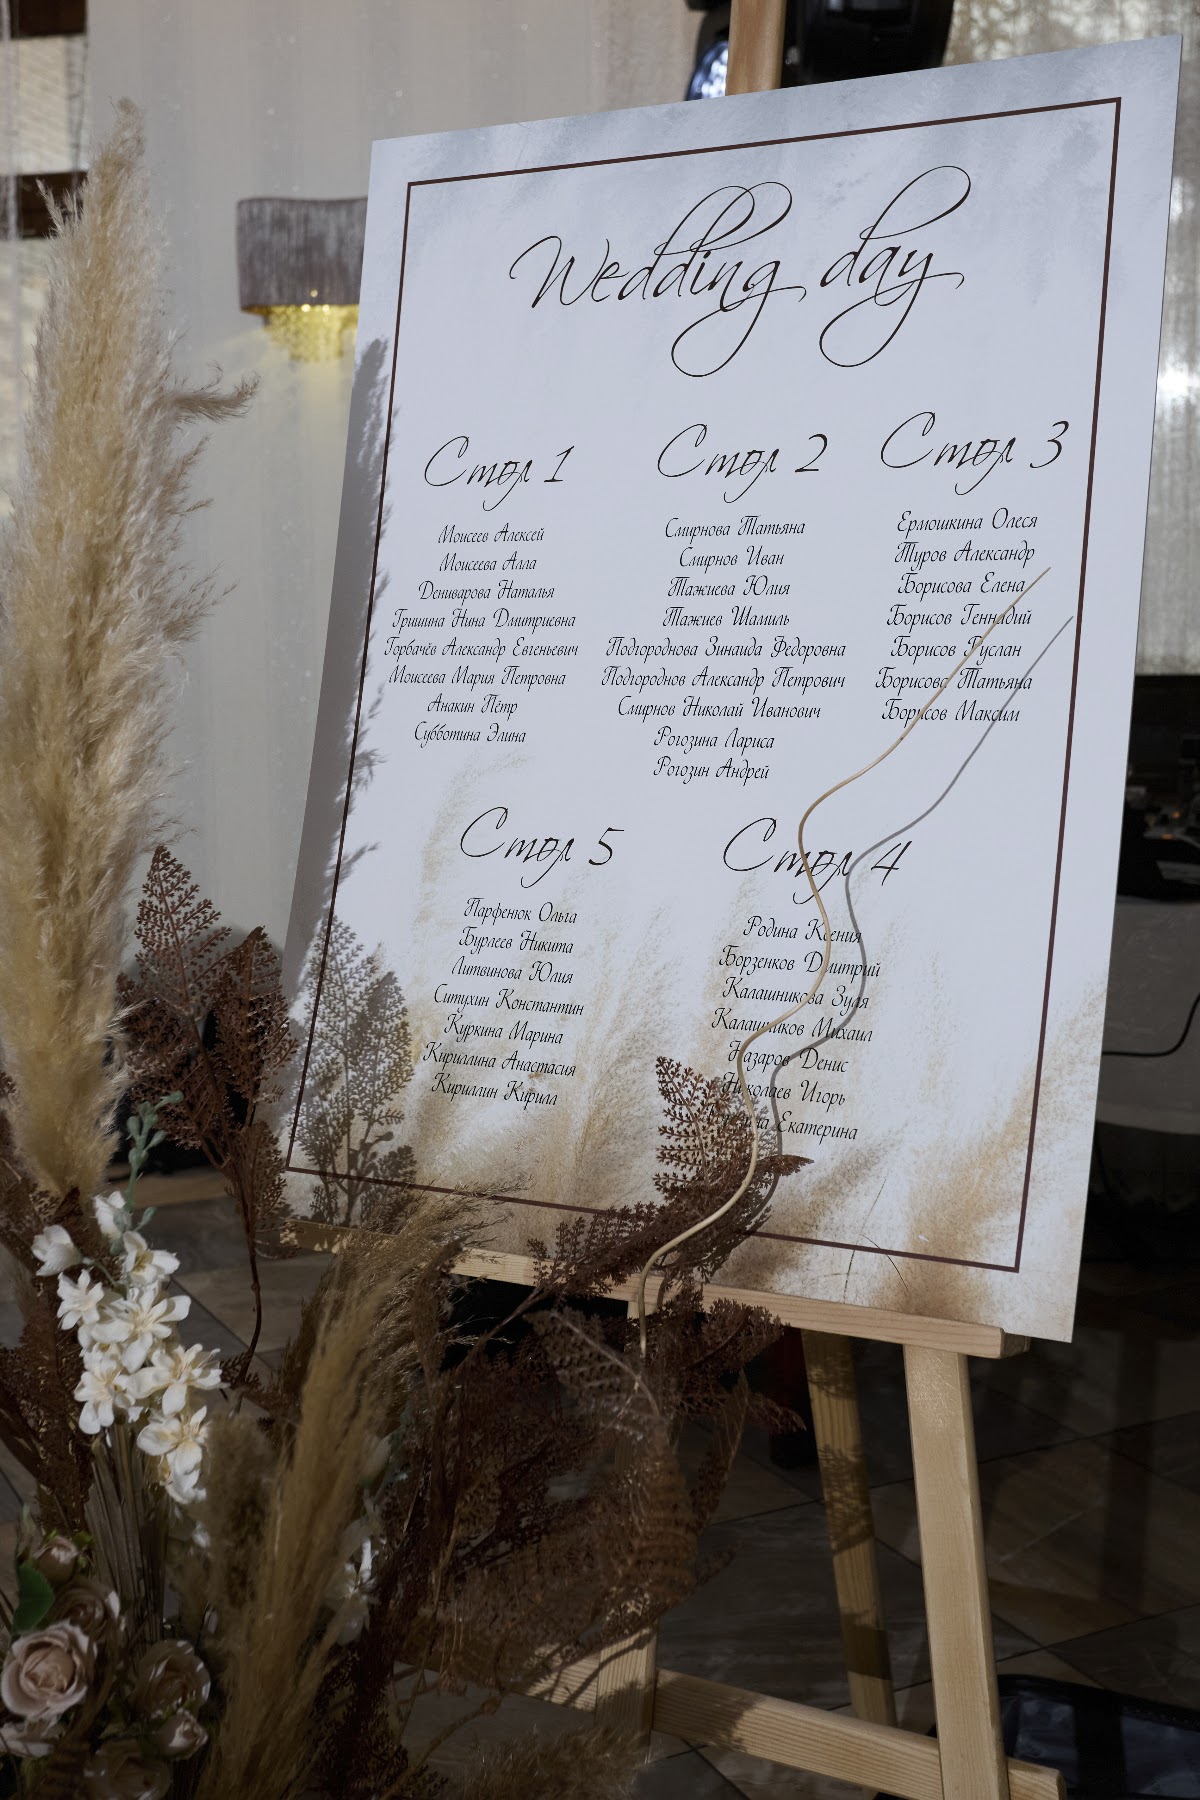 Wedding day
Стол 1
Моисеев Алексей
Моисеева Алла
Дениварова Наталья
Гришина Нина Дмитриевна
Горбачёв Александр Евгеньевич
Моисеева Мария Петровна
Анакин Пётр
Субботина Элина
Стол 2
Смирнова Татьяна
Смирнов Иван
Тажиева Юлия
Тажиев Шамиль
Подгороднова Зинаида Федоровна
Подгороднов Александр Петрович
Смирнов Николай Иванович
Рогозина Лариса
Рогозин Андрей
Стол 3
Ермошкина Олеся
Туров Александр
Борисова Елена
Борисов Геннадий
Борисов Руслан
Борисова Татьяна
Борисов Максим
Стол 5
Парфенюк Ольга
Бурлеев Никита
Литвинова Юлия
Ситухин Константин
Куркина Марина
Кириллина Анастасия
Кириллин Кирилл
Стол 4
Родина Ксения
Борзенков Дмитрий
Калашникова Зуля
Калашников Михаил
Назаров Денис
Николаев Игорь
Екатерина